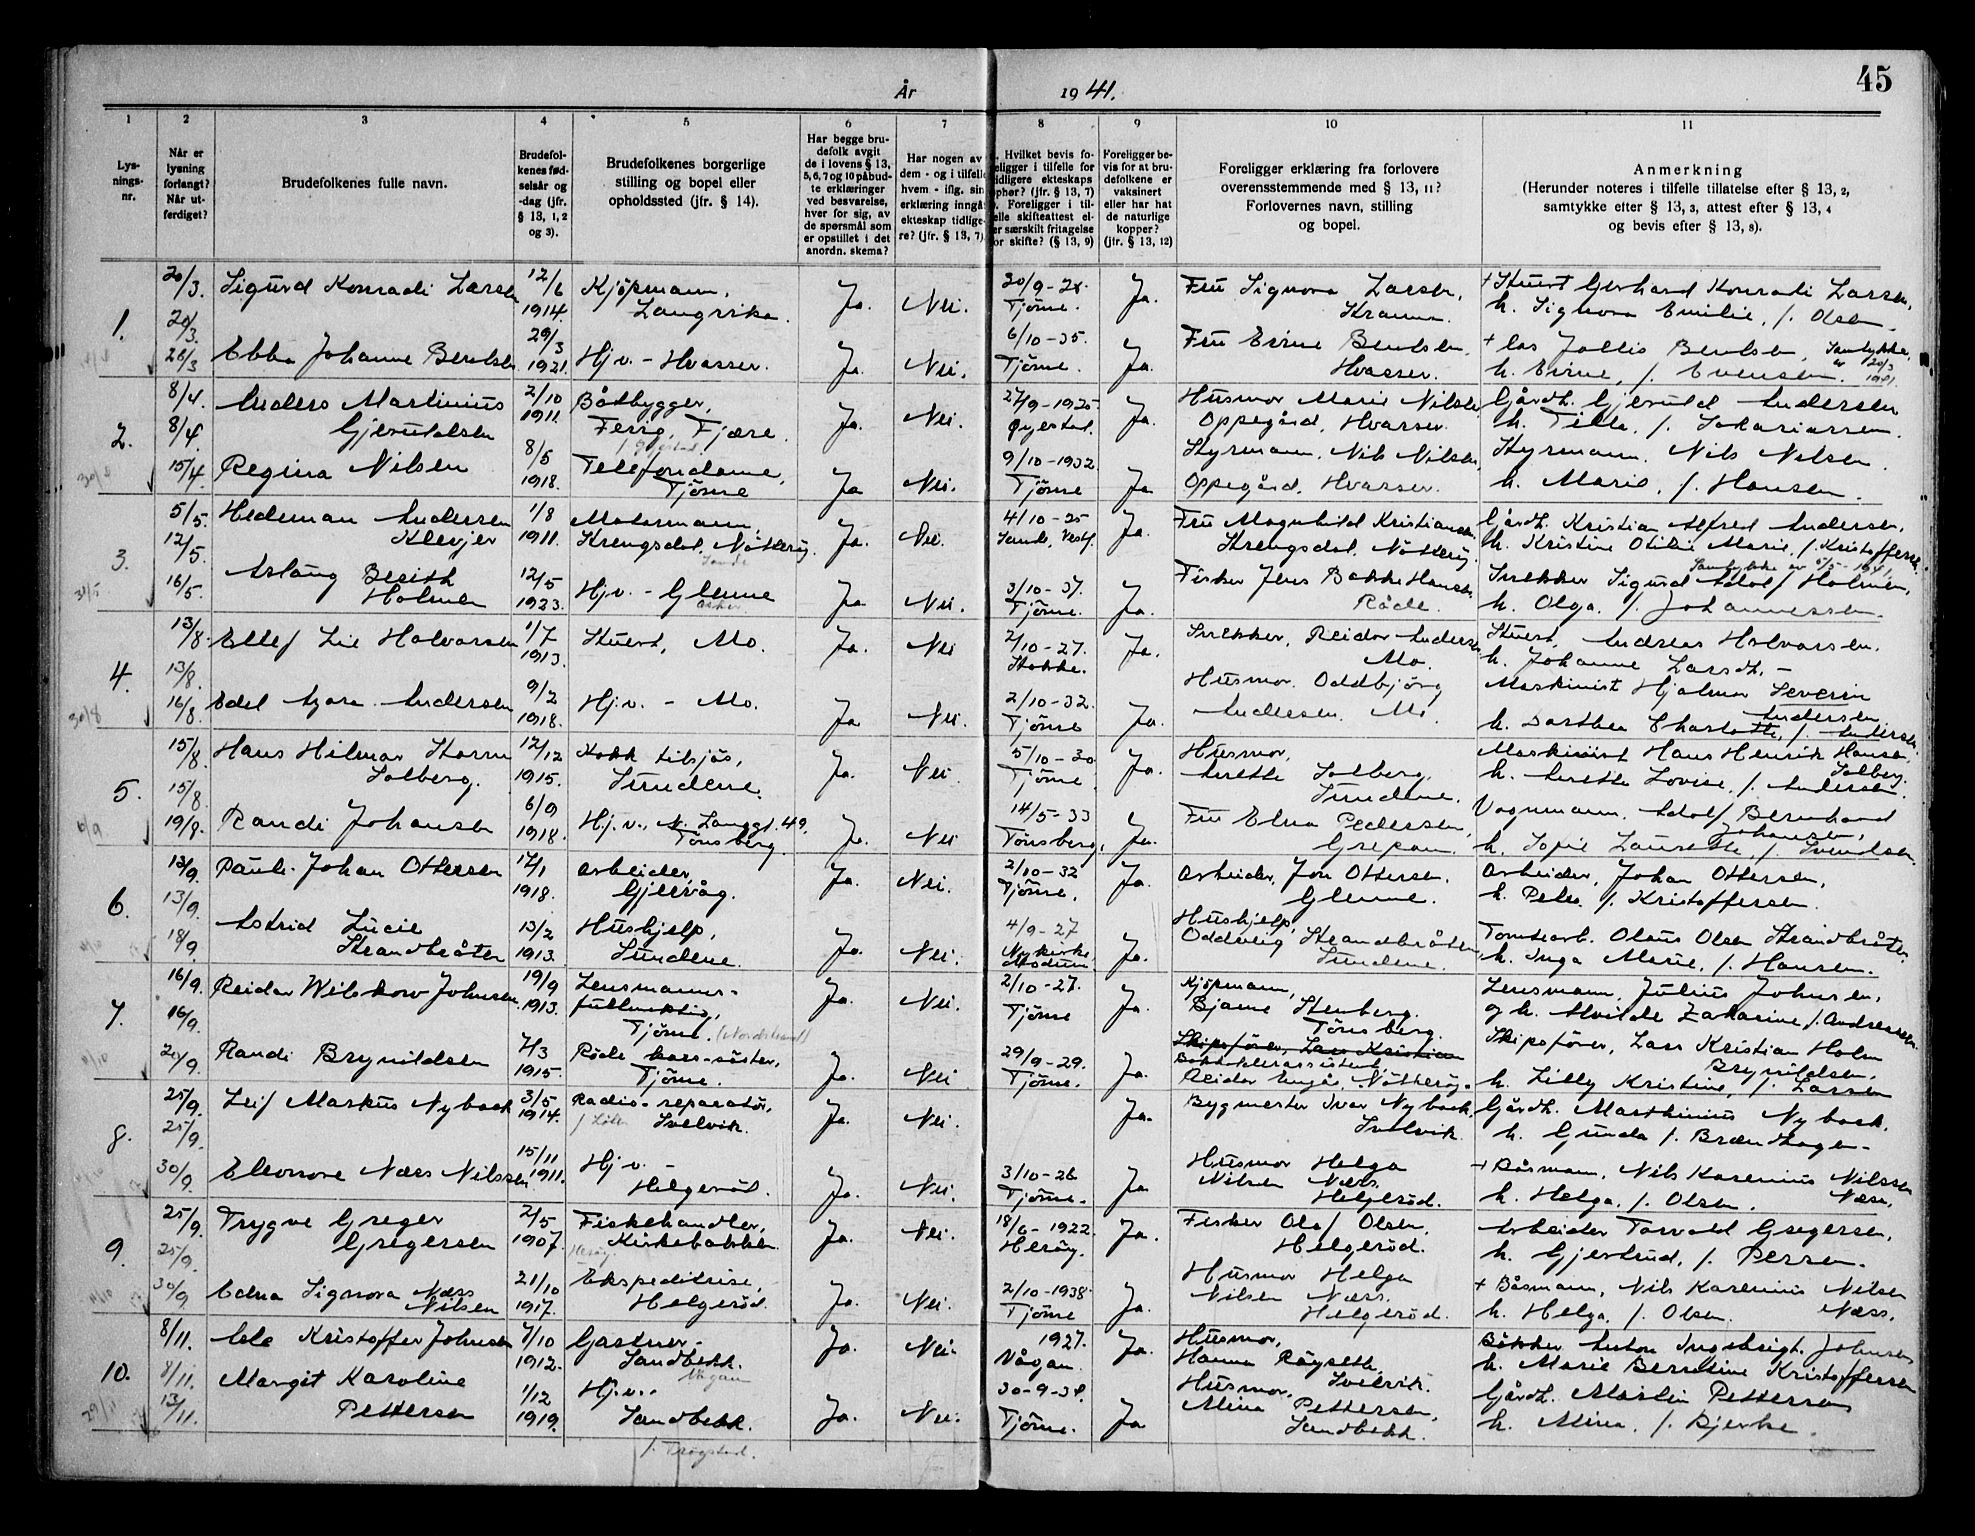 45
År 1941.
1
2
3
4
5
6
7
8
9
10
11
Lys-
nings-
nr.
Når er
lysning
forlangt?
Når ut-
ferdiget?
Brudefolkenes fulle navn.
Brudefol-
kenes fød-
selsår og
-dag (jfr.
§ 13, 1, 2
og 3).
Brudefolkenes borgerlige
stilling og bopel eller
opholdssted (jfr. § 14).
Har begge bru-
defolk avgit
de i lovens § 13,
5, 6, 7 og 10 påbud-
te erklæringer
ved besvarelse,
hver for sig, av
de spørsmål som
er opstillet i det
anordn. skema?
Har nogen av
dem - og i tilfelle
hvem - iflg. sin
erklæring inngå
ekteskap tidlige-
re? (jfr. § 13, 7)
Hvilket bevis fo-
eligger i tilfelle for
idligere ekteskaps
ophør? (jfr. § 13, 7)
Foreligger i til-
elle skifteattest el-
er særskilt fritagelse
or skifte? (§ 13, 9)
Foreligger be-
vis for at bru-
defolkene er
vaksinert
eller har hat
de naturlige
kopper?
(jfr. § 13, 12)
Foreligger erklæring fra forlovere
overensstemmende med § 13, 11?
Forlovernes navn, stilling
og bopel.
Anmerkning
(Herunder noteres i tilfelle tillatelse efter § 13, 2,
samtykke efter § 13, 3, attest efter § 13, 4
og bevis efter § 13, 8).
1.
20/3.
20/3.
26/3
Sigurd Konradi Larsen
12/6
1914.
Kjøpmann,
Langvika.
Ja.
Nei.
30/9-28.
Tjøme.
Ja.
Fru Signora Larsen,
+ Stuert Gerhard Konradi Larsen,
h. Signora Emilie, f. Olsen.
Ebba Johanne Bentsen
29/3
1921.
Hj.v. - Hvasser.
Ja.
Nei.
6/10-35.
Tjøme.
Ja.
Fru Evine Bentsen,
Hvasser.
+ los Jallis Bentsen, Samtykke,
h. Evine, f. Evensen. av 20/3 1941.
2.
8/4.
8/4.
15/4.
Anders Martinius
Gjeruldsen
2/10
1911.
Båtbygger,
Fevig, Fjære.
Ja.
Nei.
27/9-1925.
Øyestad.
Ja.
Husmor Marie Nilsen
Oppegård, Hvasser.
Gårdb. Gjeruld Andersen
h. Tilla, f. Sakariassen.
Regina Nilsen
8/5
1918.
Telefondame,
Tjøme
Ja
Nei.
9/10-1932.
Tjøme
Ja
Styrmann, Nils Nilsen,
Oppegård, Hvasser.
Styrmann Nils Nilsen.
h. Marie, f. Hansen.
3.
5/5.
12/5.
16/5.
Hedeman Andersen
Klevjer
1/8
1911.
Motormann,
Strengsdal, Nøtterøy.
Sande
Ja.
Nei.
4/10-25
Sande, Vestf.
Ja.
Fru Magnhild Kristiansen
Strengsdal, Nøtterøy.
Gårdb. Kristian Alfred Andersen,
h. Kristine Otilie Marie, f. Kristoffersen.
Samtykke av 5/5-1941.
Aslaug Berith
Holmen
12/5
1923.
Hj.v. - Glenne
Ja
Nei.
3/10-37.
Tjøme.
Ja.
Fisker Jens Bakke Hansen
Røde.
Snekker Sigurd Adolf Holmen,
h. Olga, f. Johannessen.
4.
13/8.
13/8.
16/8.
Ellef Lie Halvorsen
1/7
1913.
Stuert, Mo.
Ja.
Nei
2/10-27.
Stokke.
Ja.
Snekker, Reidar Andersen
Mo.
Stuert, Andreas Halvorsen.
h. Johanne Larsdt.
Edel Azora Andersen
9/2
1918.
Hj.v. - Mo.
Ja
Nei.
2/10-32.
Tjøme
Ja.
Husmor Oddbjørg
Andersen Mo.
Maskinist Hjalmar Severin
Andersen
h. Dorthea Charlotte, f. Andersen.
5.
15/8.
15/8.
19/8.
Hans Hilmar Storm
Solberg.
12/12
1915.
Kokk tilsjøs,
Sundene.
Ja.
Nei.
5/10-30
Tjøme
Ja.
Husmor,
Anette Solberg,
Sundene.
Maskinist Hans Henrik Hansen
Solberg.
h. Anette Lovise, f. Andersen.
Randi Johansen
6/9
1918.
Hj.v., N. Langgt. 49,
Tønsberg.
Ja.
Nei
14/5-33
Tønsberg.
Ja.
Fru Elna Pedersen,
Grepan.
Vognmann Adolf Bernhard
Johansen,
h. Sofie Laurette, f. Svendsen.
6.
13/9.
13/9.
18/9.
Pauli Johan Ottersen
17/1
1918.
Arbeider,
Gjervåg.
Ja.
Nei.
2/10-32
Tjøme.
Ja.
Arbeider, Jon Ottersen.
Glenne.
Arbeider, Johan Ottersen,
h. Petra f. Kristoffersen.
Astrid Lucie
Strandbråten
13/2
1913.
Hushjelp,
Sundene.
Ja.
Nei.
4/9-27
Nykirke,
Modum.
Ja.
Hushjelp,
Oddveig Strandbråten
Sundene.
Tomtearb. Olaus Olsen Strandbråten,
h. Inga Marie, f. Hansen.
7.
16/9.
16/9.
20/9.
Reidar Wilskow Johnsen
19/9
1913.
Lensmanns-
fullmektig,
Tjøme. (Nordstrand)
Ja.
Nei.
2/10-27.
Tjøme
Ja
Kjøpmann,
Bjarne Stenberg.
Tønsberg.
Lensmann, Julius Johnsen,
og h. Alvilde Zakarine, f. Andreassen.
Randi Brynildsen
7/3
1915.
Røde kors-søster,
Tjøme.
Ja.
Nei
29/9-29.
Tjøme.
Ja.
Skipsfører, Lars Kristian
Reidar Engø, Nøtterøy.
Skipsfører, Lars Kristian Holm
Brynildsen,
h. Lilly Kristine, f. Larsen
8.
25/9.
25/9.
30/9.
Leif Markus Nyback
3/5
1914.
Radio-reparatør,
Svelvik.
Ja.
Nei.
Ja.
Bygmester Ivar Nyback,
Svelvik.
Gårdb. Marthinius Nyback.
h. Gunda f. Brændhagen
Eleonore Næss Nilssen
15/11
1911.
Hj.v. -
Helgerød.
Ja.
Nei.
3/10-26
Tjøme.
Ja
Husmor Helga
Nilsen Næss.
Helgerød.
+ Båsmann, Nils Karenius Nilssen
Næss,
h. Helga, f. Olsen.
9.
25/9.
25/9.
30/9
Trygve Greger
Gregersen
2/5
1907.
Fiskehandler,
Kirkebakken
Herøy.
Ja.
Nei.
18/6-1922
Herøy.
Ja.
Fisker Olaf Olsen,
Helgerød.
Arbeider Torvald Gregersen,
h. Gjertrud, f. Persen.
Edna Signora Næss
Nilsen
21/10
1917.
Ekspeditrise,
Helgerød.
Ja.
Nei.
2/10-1938.
Tjøme
Ja.
Husmor Helga
Nilsen Næss.
Helgerød.
+ Båsmann, Nils Karenius Nilsen
Næss.
h. Helga, f. Olsen.
10.
8/11.
8/11.
13/11.
Kristoffer Johnsen
7/10
1912.
Gartner -
Sandbekk.
Vågan
Ja.
Nei.
1927.
Vågan.
Ja.
Husmor,
Hanna Røyseth,
Svelvik.
Båkker Anton Ingebrigt Johnsen
h. Marie Berntine Kristoffersen
Margit Karoline
Pettersen
1/12
1919.
Hj.v..
Sandbekk.
Ja.
Nei.
30-9-34.
Tjøme.
Ja
Husmor,
Mina Pettersen,
Sandbekk.
Gårdb. Martin Pettersen
h. Mina, f. Bjerke.
f. Trøgstad.